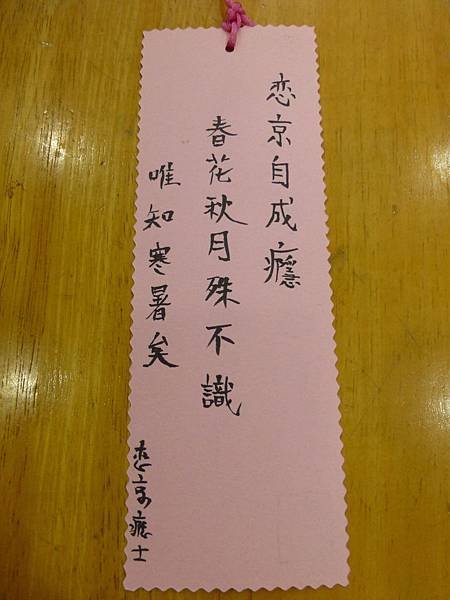 恋京自成癮
春花秋月殊不識
唯知寒暑矣
恋京癮士